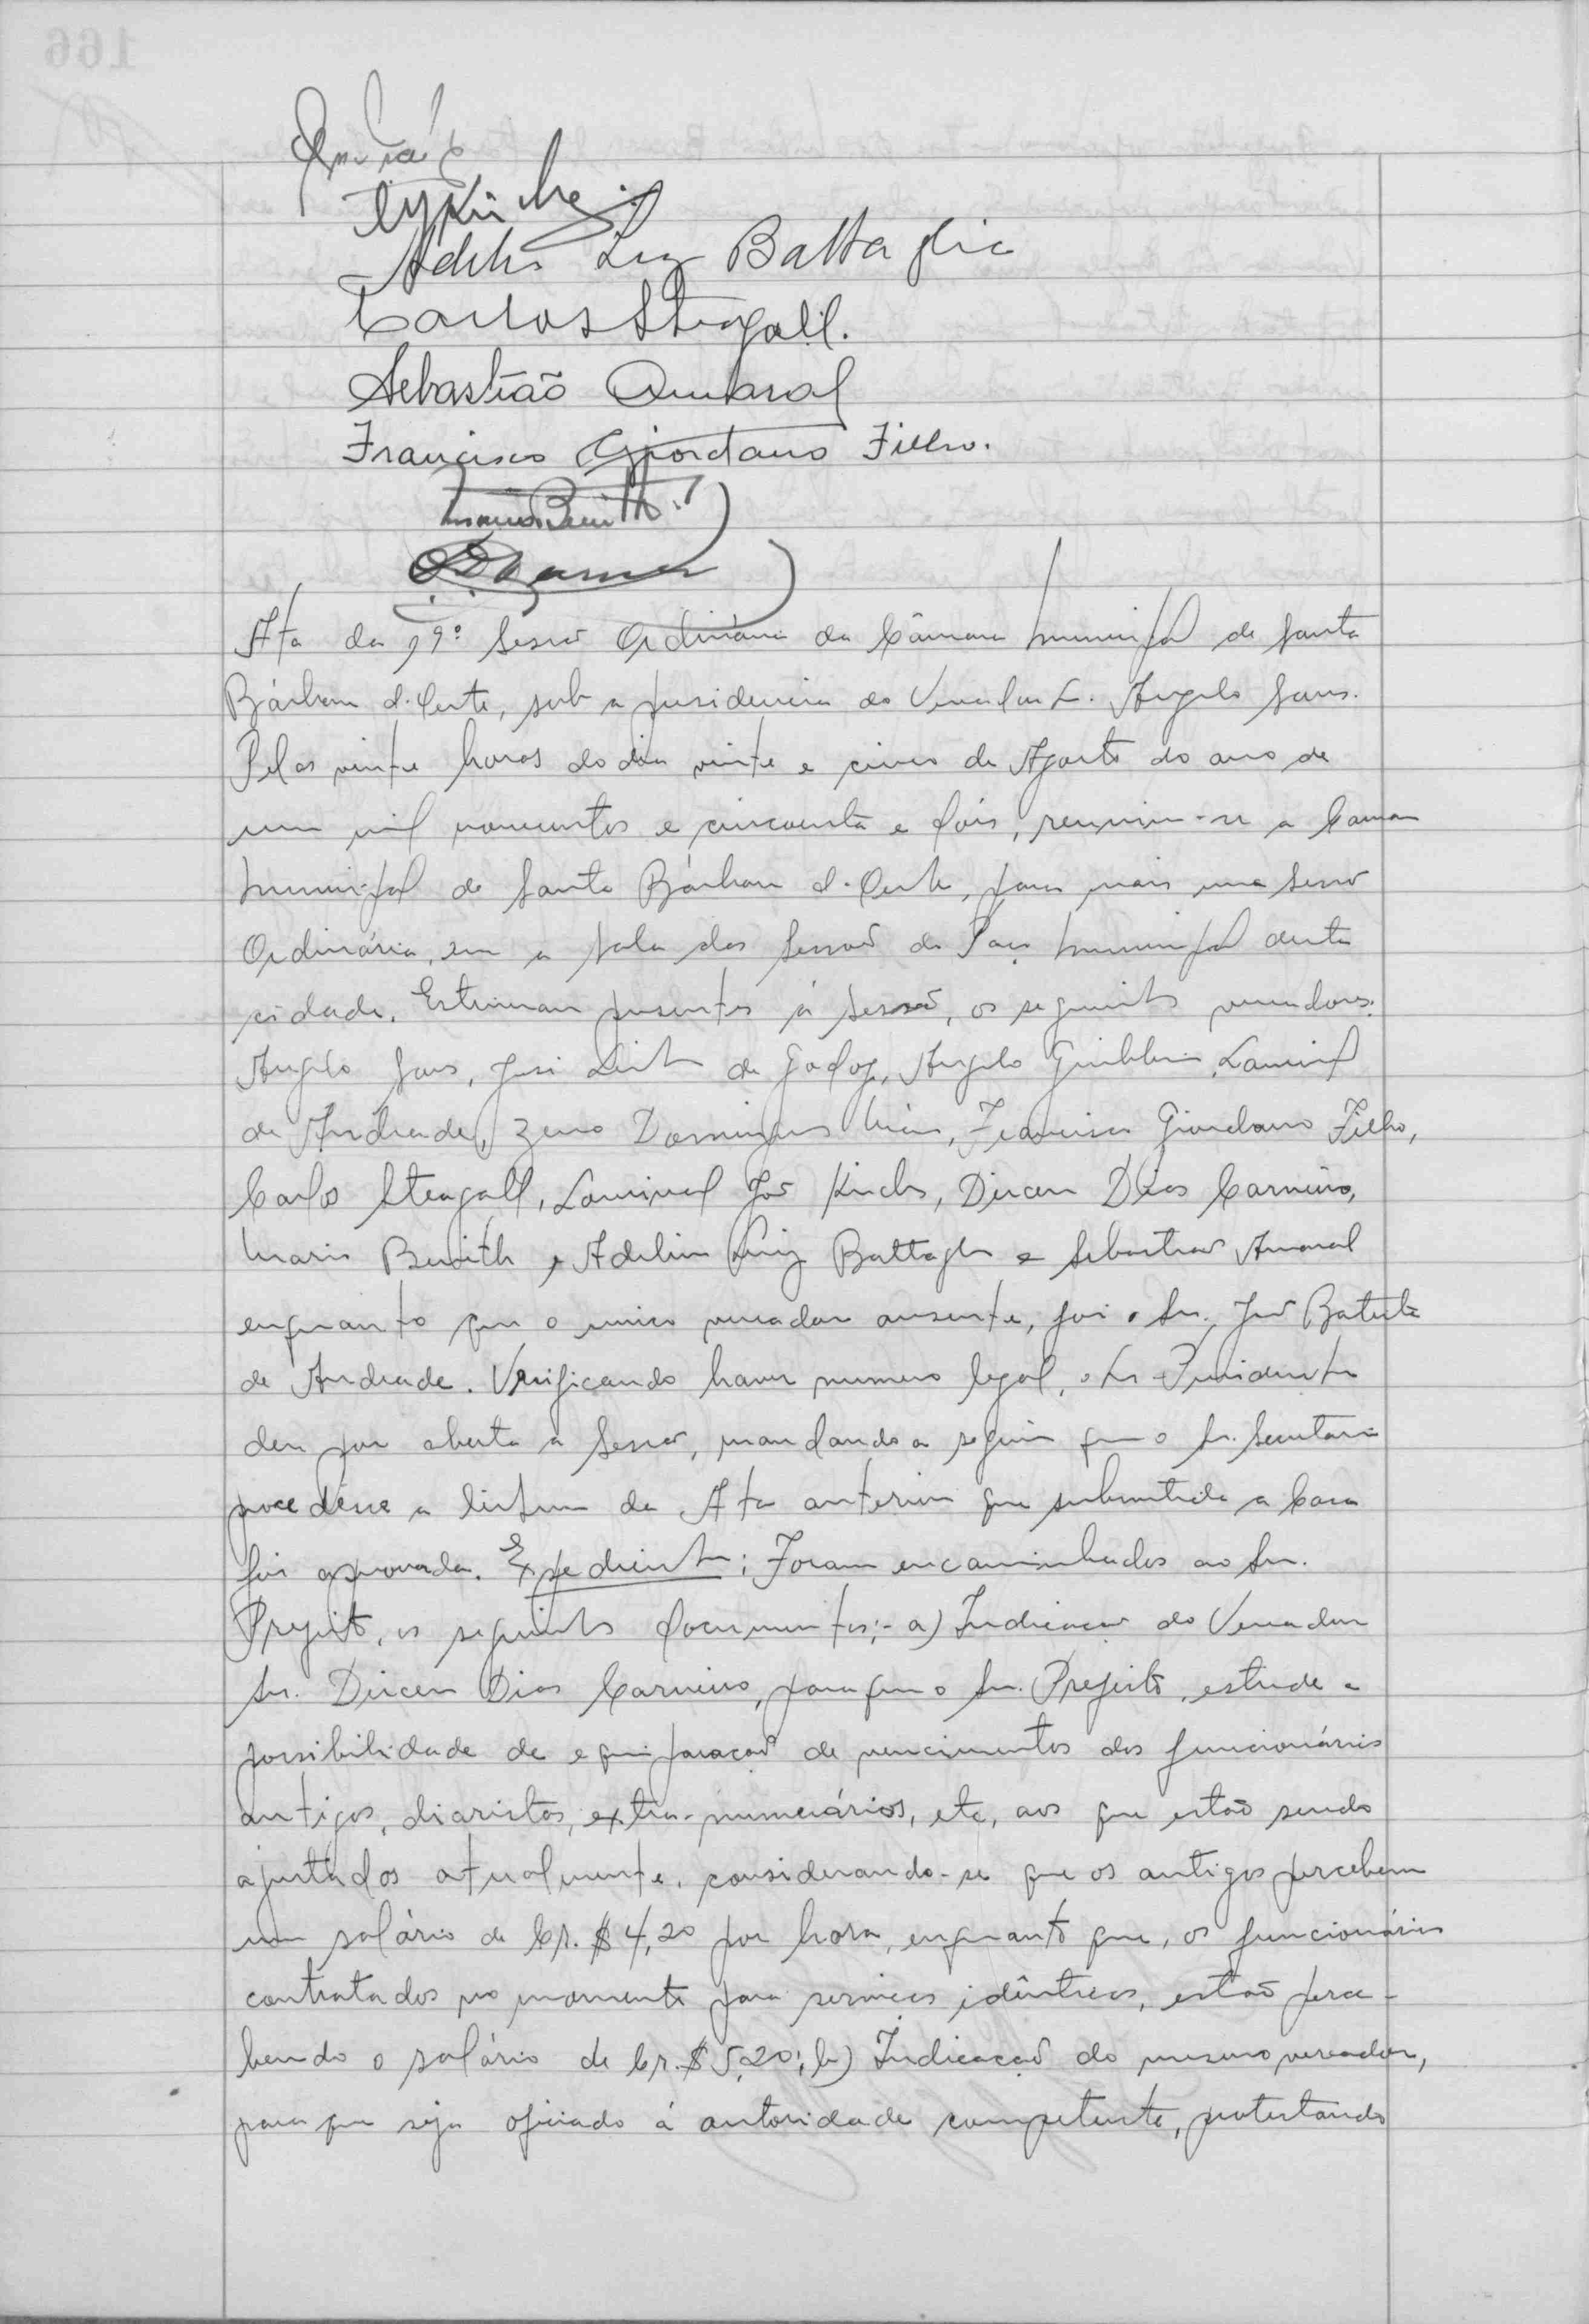 Adelino Luiz Battaglia
Carlos Steagall.
Sebastião Amaral
Francisco Giordano Filho.
Mario Benith
Ata da 19ª Sessão Ordinária da Câmara Municipal de Santa
Bárbara d'Oeste, sob a presidencia do Vereador Sr. Angelo Sans.
Pelas vinte horas do dia vinte e cinco de Agosto do ano de
um mil novecentos e cincoenta e dois, reuniu-se a Camara
Municipal de Santa Bárbara d'Oeste, para mais uma Sessão
Ordinária, em a sala das Sessões do Paço Municipal desta
cidade. Estiveram presentes á sessão, os seguintes vereadores:
Angelo Sans, José Leite de Godoy, Angelo Giubbina, Laurival
de Andrade, Zeno Domingues Maia, Francisco Giordano Filho,
Carlos Steagall, Laurival José Kirche, Dirceu Dias Carneiro,
Mario Benith, Adelino Luiz Battaglia e Sebastião Amaral
enquanto que o unico vereador ausente, foi o Sr. José Batista
de Andrade. Verificando haver numero legal, o Sr. Presidente
deu por aberta a Sessão, mandando a seguir que o Sr. Secretario
procedêsse a leitura da Ata anterior que submetida a Casa
foi aprovada. Expediente: Foram encaminhados ao Snr.
Prefeito, os seguintes documentos:- a) Indicação do Vereador
Snr. Dirceu Dias Carneiro, para que o Snr. Prefeito, estude a
possibilidade de equiparação de vencimentos dos funcionários
antigos, diaristas, extra-numerários, etc, aos que estão sendo
ajustados atualmente, considerando-se que os antigos percebem
um salário de Cr.$ 4,20 por hora, enquanto que, os funcionários
contratados no momento para serviços idênticos, estão perce-
bendo o salário de Cr.$ 5,20; b) Indicação do mesmo vereador,
para que seja oficiado á autoridade competente, protestando